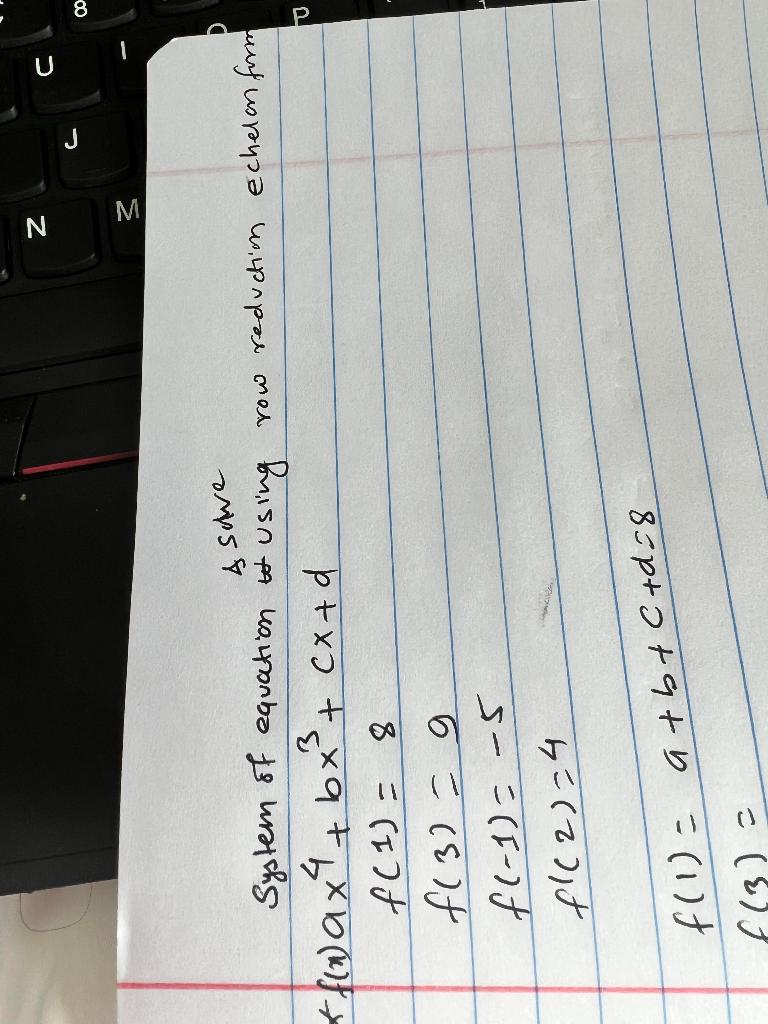 8
P
U I
J
N M
& solve
System of equation using row reduction echelon form
* f(x) ax⁴ + bx³ + cx + d
f(1) = 8
f(3) = 9
f(-1) = -5
f'(2) = 4
f(1) = a + b + c + d = 8
f(3) =